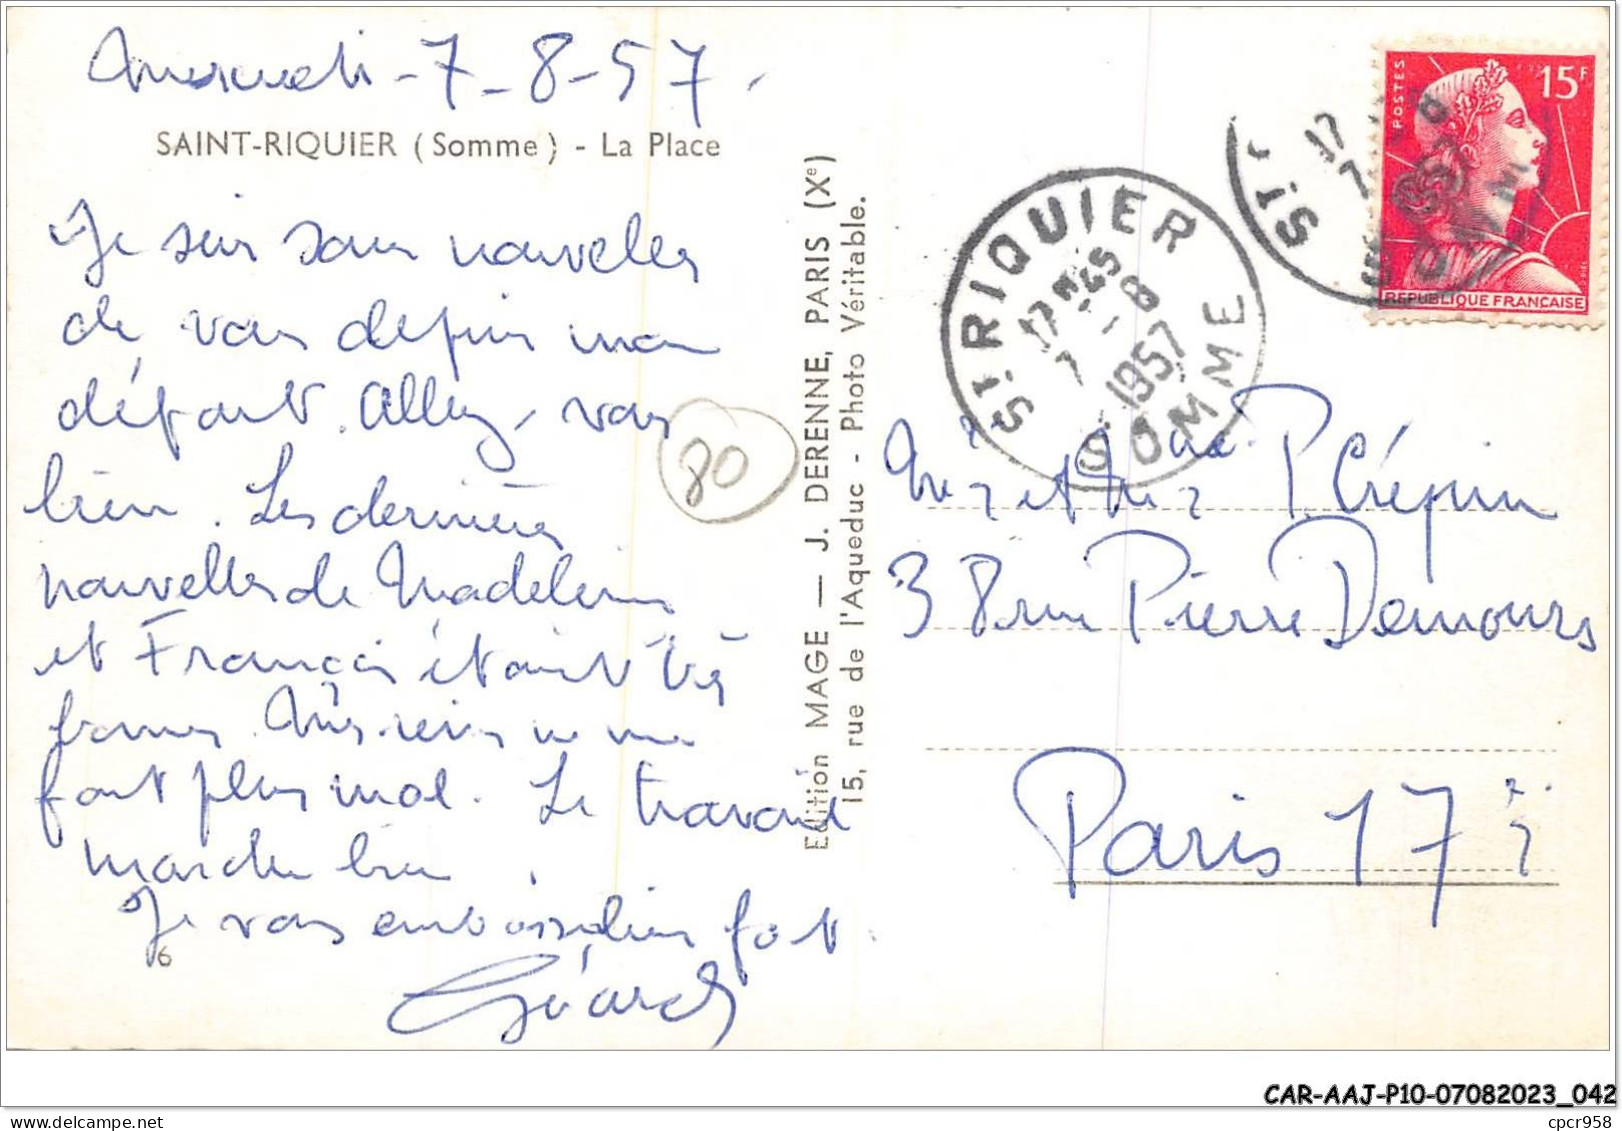 mercredi - 7 - 8 - 57.
SAINT-RIQUIER (Somme) - La Place
Je suis sans nouvelles
de vous depuis mon
départ. Allez-vous
bien. Les dernières
nouvelles de Madeleine
et François étaient très
bonnes. Mes reins ne me
font plus mal. Le travail
marche bien.
Je vous embrasse bien fort.
Gérard
6
80
Edition MAGE — J. DERENNE, PARIS (Xe)
15, rue de l'Aqueduc - Photo Véritable.
ST RIQUIER
17 H 45
7 - 8
1957
SOMME
ST
17
7
1957
POSTES
15F
REPUBLIQUE FRANCAISE
Mr et Me P. Crépin
38 rue Pierre Demours
Paris 17è
CAR-AAJ-P10-07082023_042
cpcr958